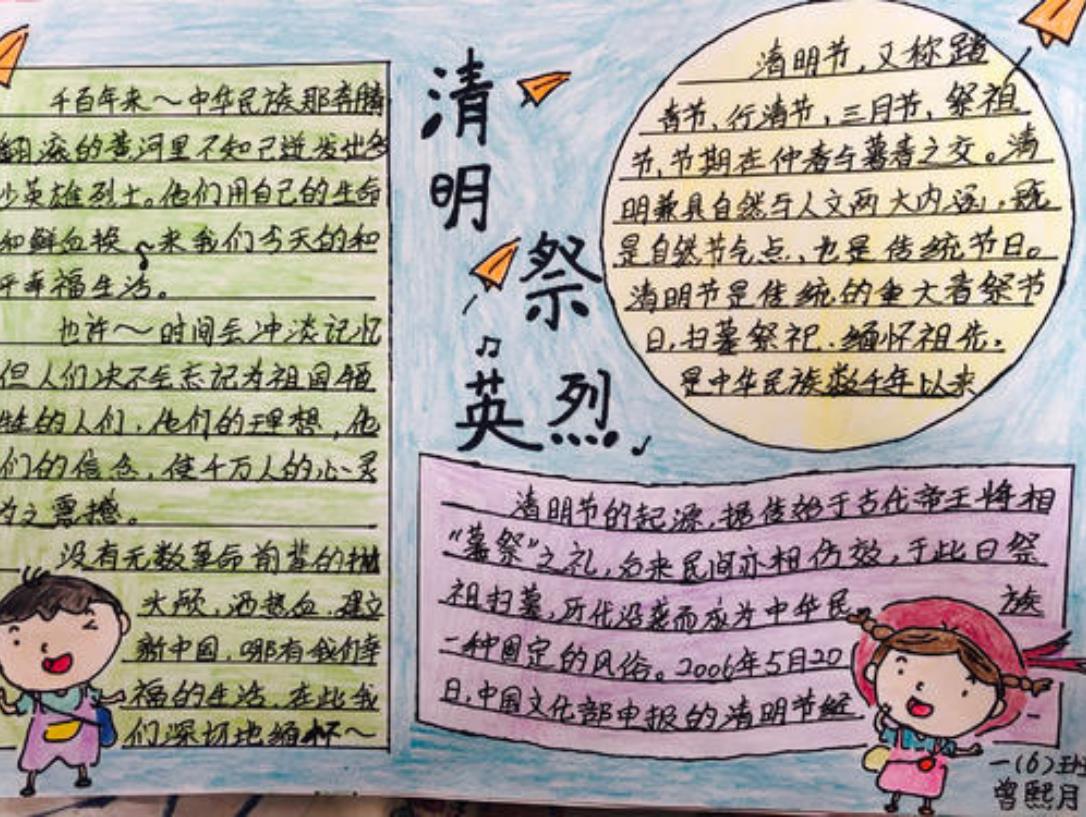 清明
祭英烈
千百年来～中华民族那奔腾
翻滚的黄河里不知己迸发出多
少英雄烈士。他们用自己的生命
和鲜血换来我们今天的和
平幸福生活。
也许～时间会冲淡记忆
但人们决不会忘记为祖国牺
牲的人们，他们的理想，他
们的信念，使千万人的心灵
为之震撼。
没有无数革命前辈的抛
头颅，洒热血，建立
新中国，哪有我们幸
福的生活，在此我
们深切地缅怀～
清明节，又称踏
青节、行清节、三月节、祭祖
节，节期在仲春与暮春之交。清
明兼具自然与人文两大内涵，既
是自然节气点、也是传统节日。
清明节是传统的重大春祭节
日，扫墓祭祀、缅怀祖先，
是中华民族数千年以来
清明节的起源，据传始于古代帝王将相
“墓祭”之礼，后来民间亦相仿效，于此日祭
祖扫墓，历代沿袭而成为中华民族
一种固定的风俗。2006年5月20
日，中国文化部申报的清明节经
一(6)班
曾熙月